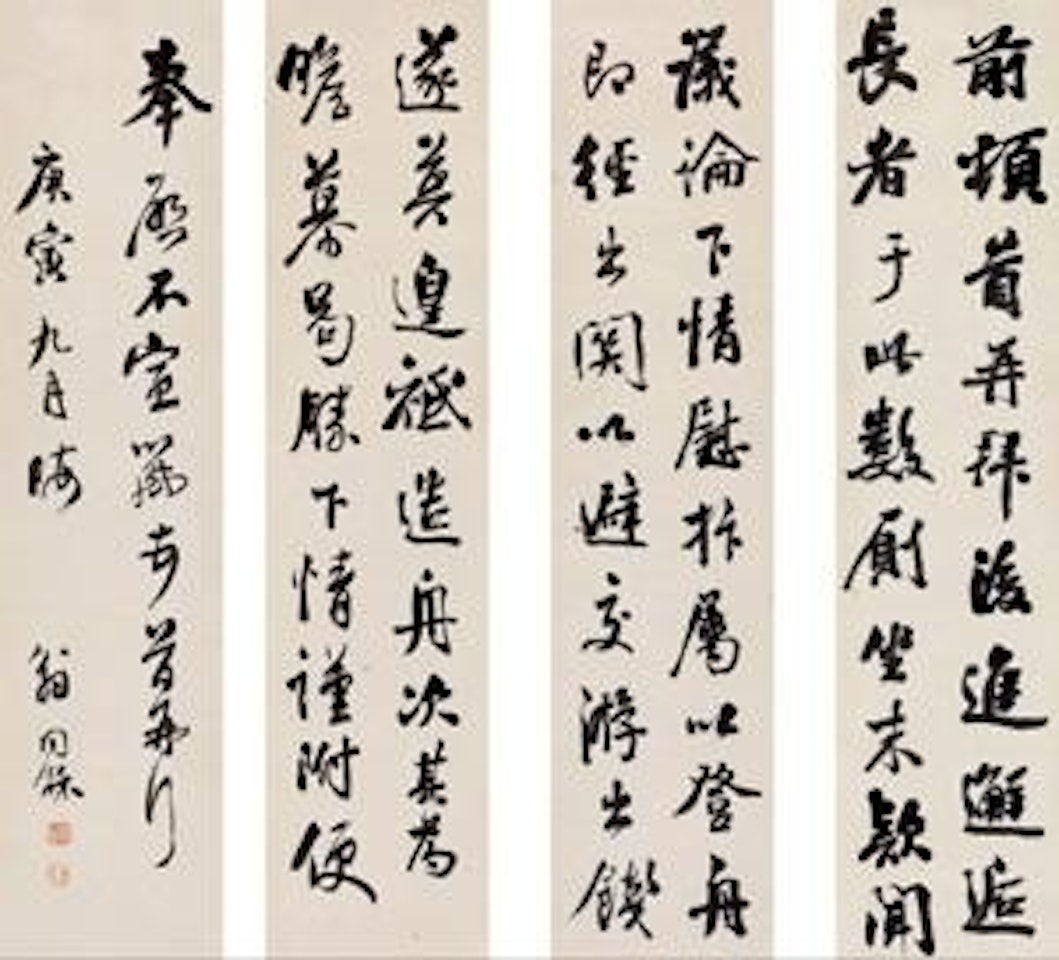 前頓首再拜後進邂逅
長者于此數厠坐末欵聞
議論下情慰抃屬以登舟
即徑出関以避交游出餞
遂莫遑祗造舟次其為
瞻慕曷勝下情謹附便
奉啟不宣黻頓首再拜
庚寅九月晦 翁同龢